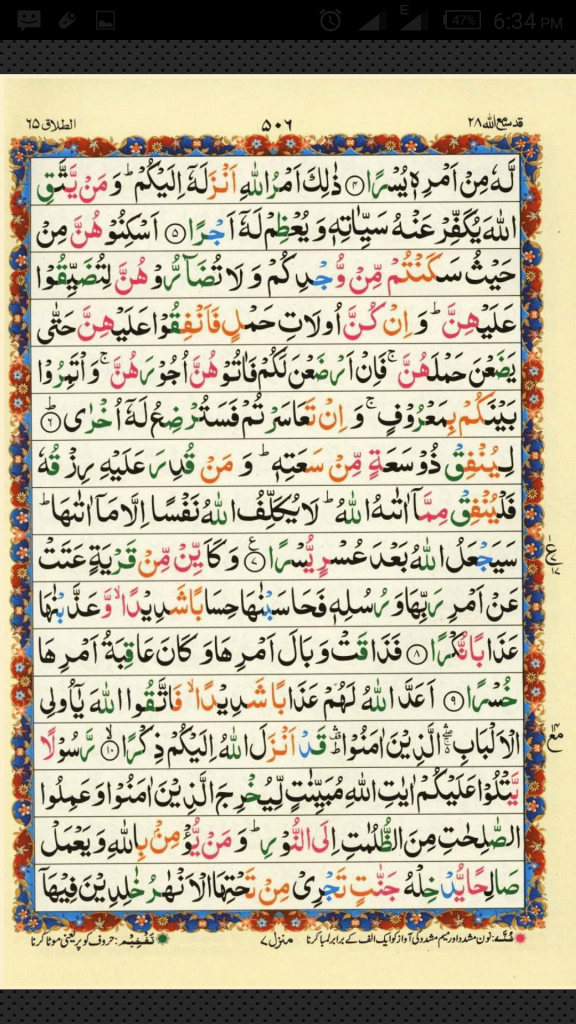 E 47% 6:34 PM
الطلاق ٦٥ ٥٠٦ قد سمع الله ٢٨
لَّهٗ مِنْ اَمْرِهٖ يُسْرًا ﴿۴﴾ ذٰلِكَ اَمْرُ اللّٰهِ اَنْزَلَهٗۤ اِلَيْكُمْ ؕ وَ مَنْ يَّتَّقِ
اللّٰهَ يُكَفِّرْ عَنْهُ سَيِّاٰتِهٖ وَ يُعْظِمْ لَهٗۤ اَجْرًا ﴿۵﴾ اَسْكِنُوْهُنَّ مِنْ
حَيْثُ سَكَنْتُمْ مِّنْ وُّجْدِكُمْ وَ لَا تُضَآرُّوْهُنَّ لِتُضَيِّقُوْا
عَلَيْهِنَّ ؕ وَ اِنْ كُنَّ اُولَاتِ حَمْلٍ فَاَنْفِقُوْا عَلَيْهِنَّ حَتّٰى
يَضَعْنَ حَمْلَهُنَّ ۚ فَاِنْ اَرْضَعْنَ لَكُمْ فَاٰتُوْهُنَّ اُجُوْرَهُنَّ ۚ وَ اْتَمِرُوْا
بَيْنَكُمْ بِمَعْرُوْفٍ ۚ وَ اِنْ تَعَاسَرْتُمْ فَسَتُرْضِعُ لَهٗۤ اُخْرٰى ﴿۶﴾ؕ
لِيُنْفِقْ ذُوْ سَعَةٍ مِّنْ سَعَتِهٖ ؕ وَ مَنْ قُدِرَ عَلَيْهِ رِزْقُهٗ
فَلْيُنْفِقْ مِمَّاۤ اٰتٰىهُ اللّٰهُ ؕ لَا يُكَلِّفُ اللّٰهُ نَفْسًا اِلَّا مَاۤ اٰتٰىهَا ؕ
سَيَجْعَلُ اللّٰهُ بَعْدَ عُسْرٍ يُّسْرًا ﴿۷﴾ وَ كَاَيِّنْ مِّنْ قَرْيَةٍ عَتَتْ
عَنْ اَمْرِ رَبِّهَا وَ رُسُلِهٖ فَحَاسَبْنٰهَا حِسَابًا شَدِيْدًا ۙ وَّ عَذَّبْنٰهَا
عَذَابًا نُّكْرًا ﴿۸﴾ فَذَاقَتْ وَبَالَ اَمْرِهَا وَ كَانَ عَاقِبَةُ اَمْرِهَا
خُسْرًا ﴿۹﴾ اَعَدَّ اللّٰهُ لَهُمْ عَذَابًا شَدِيْدًا ۙ فَاتَّقُوا اللّٰهَ يٰۤاُولِى
الْاَلْبَابِ الَّذِيْنَ اٰمَنُوْا قَدْ اَنْزَلَ اللّٰهُ اِلَيْكُمْ ذِكْرًا ﴿۱۰﴾ رَّسُوْلًا
يَّتْلُوْا عَلَيْكُمْ اٰيٰتِ اللّٰهِ مُبَيِّنٰتٍ لِّيُخْرِجَ الَّذِيْنَ اٰمَنُوْا وَ عَمِلُوا
الصّٰلِحٰتِ مِنَ الظُّلُمٰتِ اِلَى النُّوْرِ ؕ وَ مَنْ يُّؤْمِنْۢ بِاللّٰهِ وَ يَعْمَلْ
صَالِحًا يُّدْخِلْهُ جَنّٰتٍ تَجْرِىْ مِنْ تَحْتِهَا الْاَنْهٰرُ خٰلِدِيْنَ فِيْهَاۤ
غُنّہ: نون مشدد اور میم مشدد کی آواز کو ایک الف کے برابر لمبا کرنا منزل ۷ تفخیم: حروف کو پُر یعنی موٹا کرنا